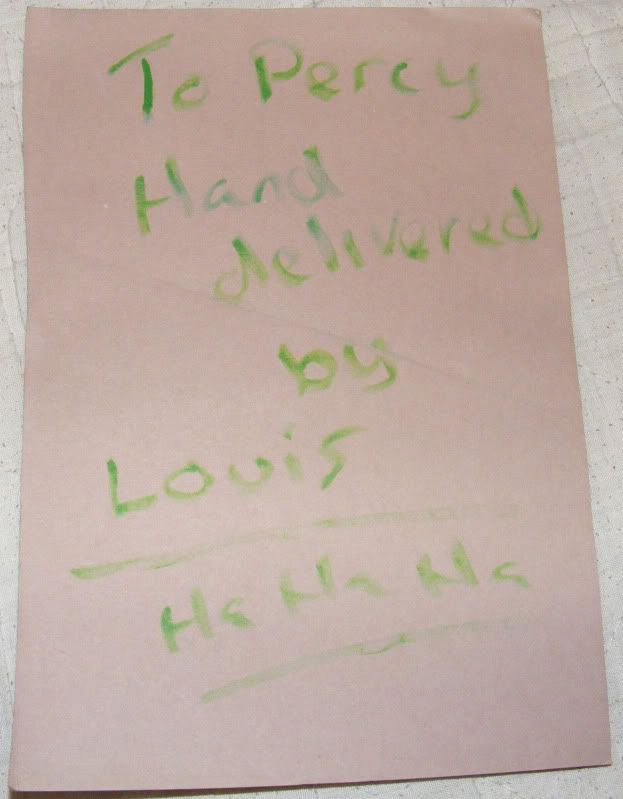 To Percy
Hand
delivered
by
Louis
Ha Ha Ha